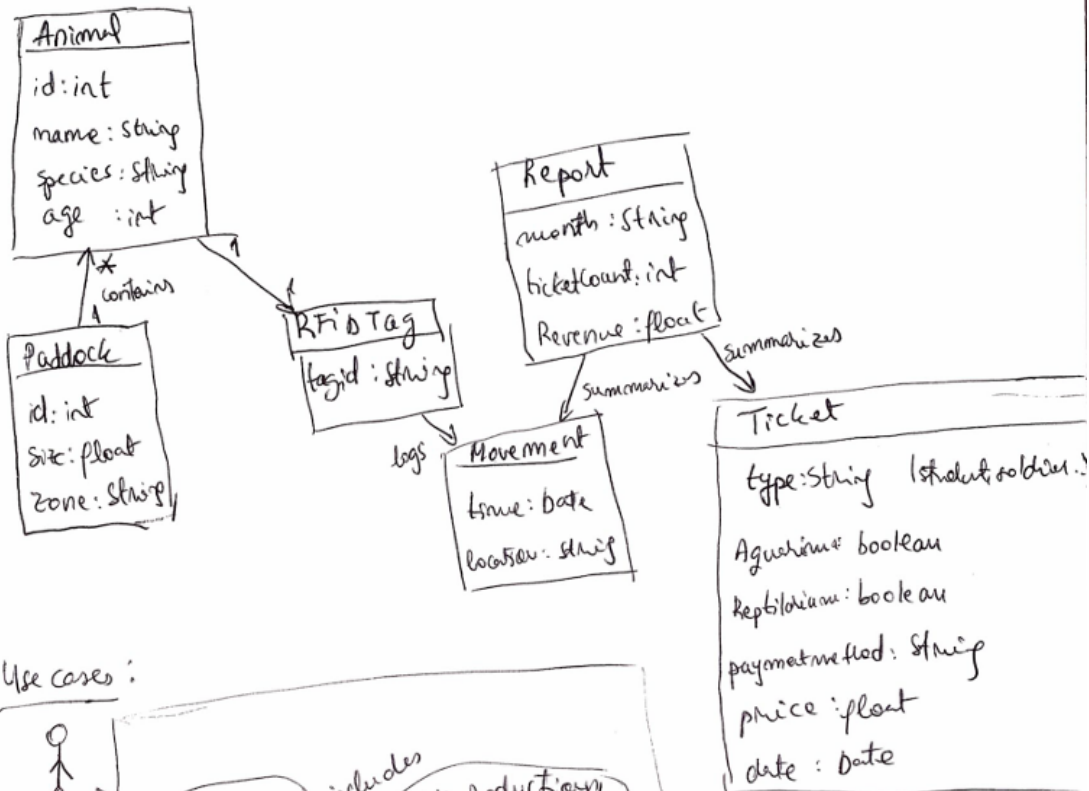 Animal
id: int
name: String
species: String
age : int
1
*
contains
1
1
Paddock
id: int
size: float
zone: String
RFiD Tag
tagid : String
logs
Report
month : String
ticketCount: int
Revenue : float
summarizes
summarizes
Movement
time: Date
location: String
Ticket
type: String (student, soldier..
boolean
boolean
String
price : float
date : Date
Use cases :